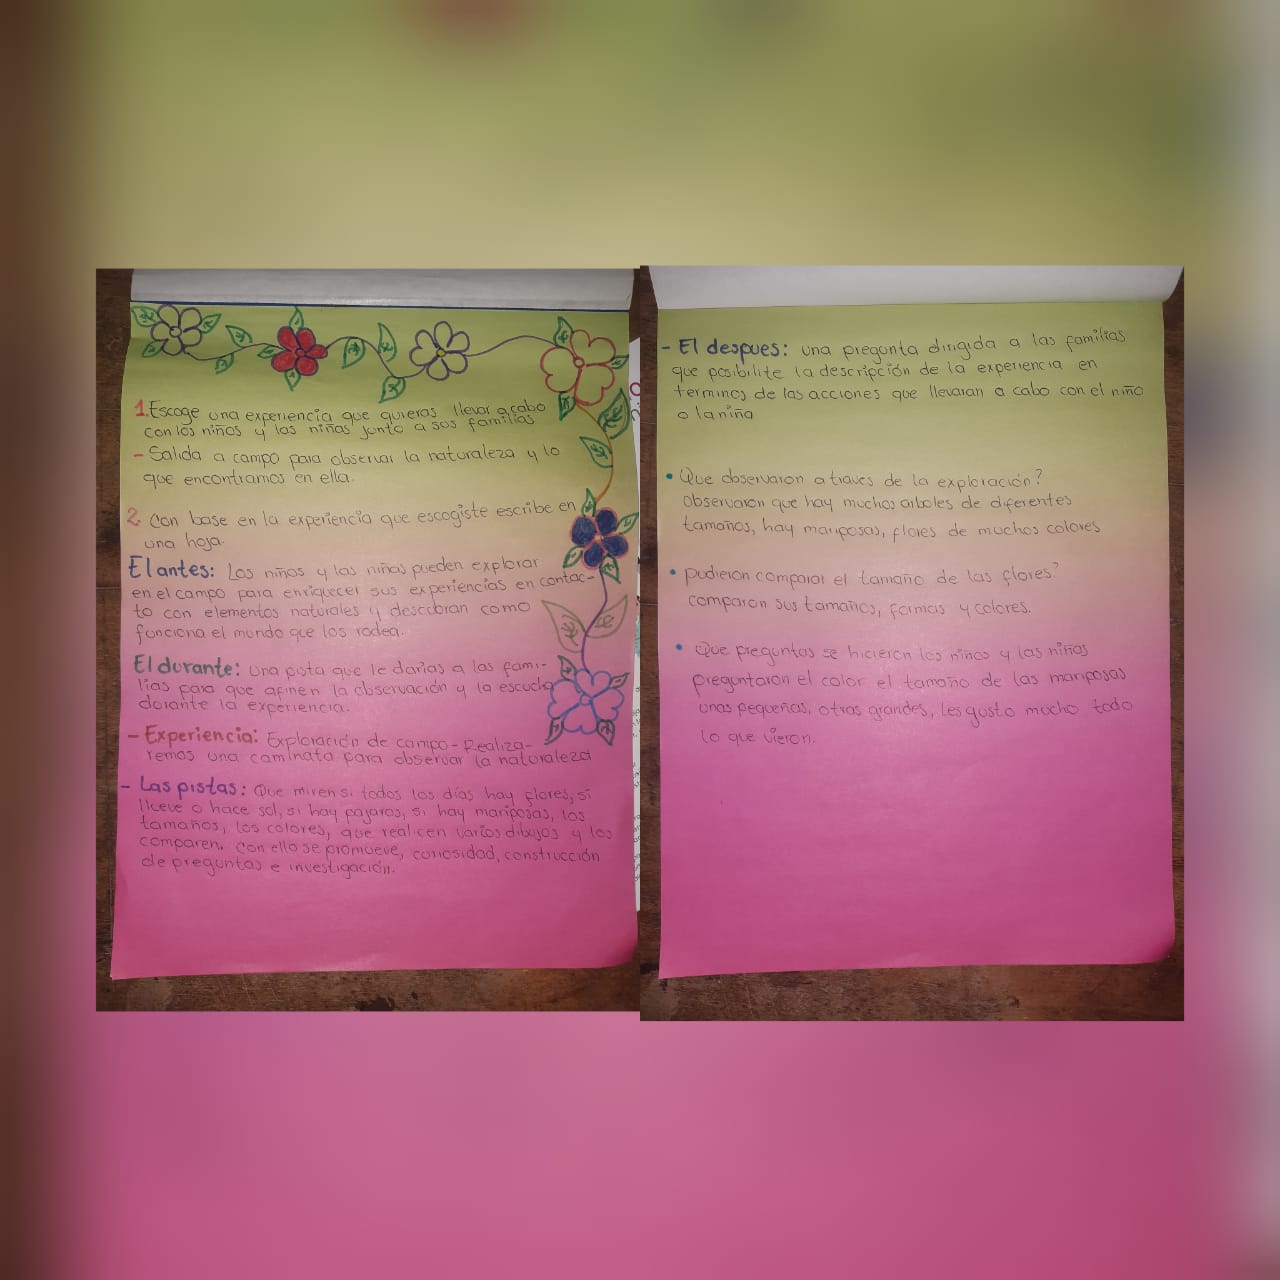 1. Escoge una experiencia que quieras llevar a cabo
con los niños y las niñas junto a sus familias
- Salida a campo para observar la naturaleza y lo
que encontramos en ella.
2. Con base en la experiencia que escogiste escribe en
una hoja.
El antes: Los niños y las niñas pueden explorar
en el campo para enriquecer sus experiencias en contac-
to con elementos naturales y descubran como
funciona el mundo que los rodea.
El durante: una pista que le darias a las fami-
lias para que afinen la observación y la escucha
durante la experiencia.
- Experiencia: Exploración de campo - Realiza-
remos una caminata para observar la naturaleza
- Las pistas: Que miren si todos los días hay flores, si
llueve o hace sol, si hay pajaros, si hay mariposas, los
tamaños, los colores, que realicen varios dibujos y los
comparen. Con ello se promueve, curiosidad, construcción
de preguntas e investigación.
- El despues: una pregunta dirigida a las familias
que posibilite la descripción de la experiencia en
terminos de las acciones que llevaran a cabo con el niño
o la niña
• Que observaron a traves de la exploración?
observaron que hay muchos arboles de diferentes
tamaños, hay mariposas, flores de muchos colores
• pudieron comparar el tamaño de las flores?
comparon sus tamaños, formas y colores.
• Que preguntas se hicieron los niños y las niñas
preguntaron el color el tamaño de las mariposas
unas pequeñas, otras grandes, les gusto mucho todo
lo que vieron.